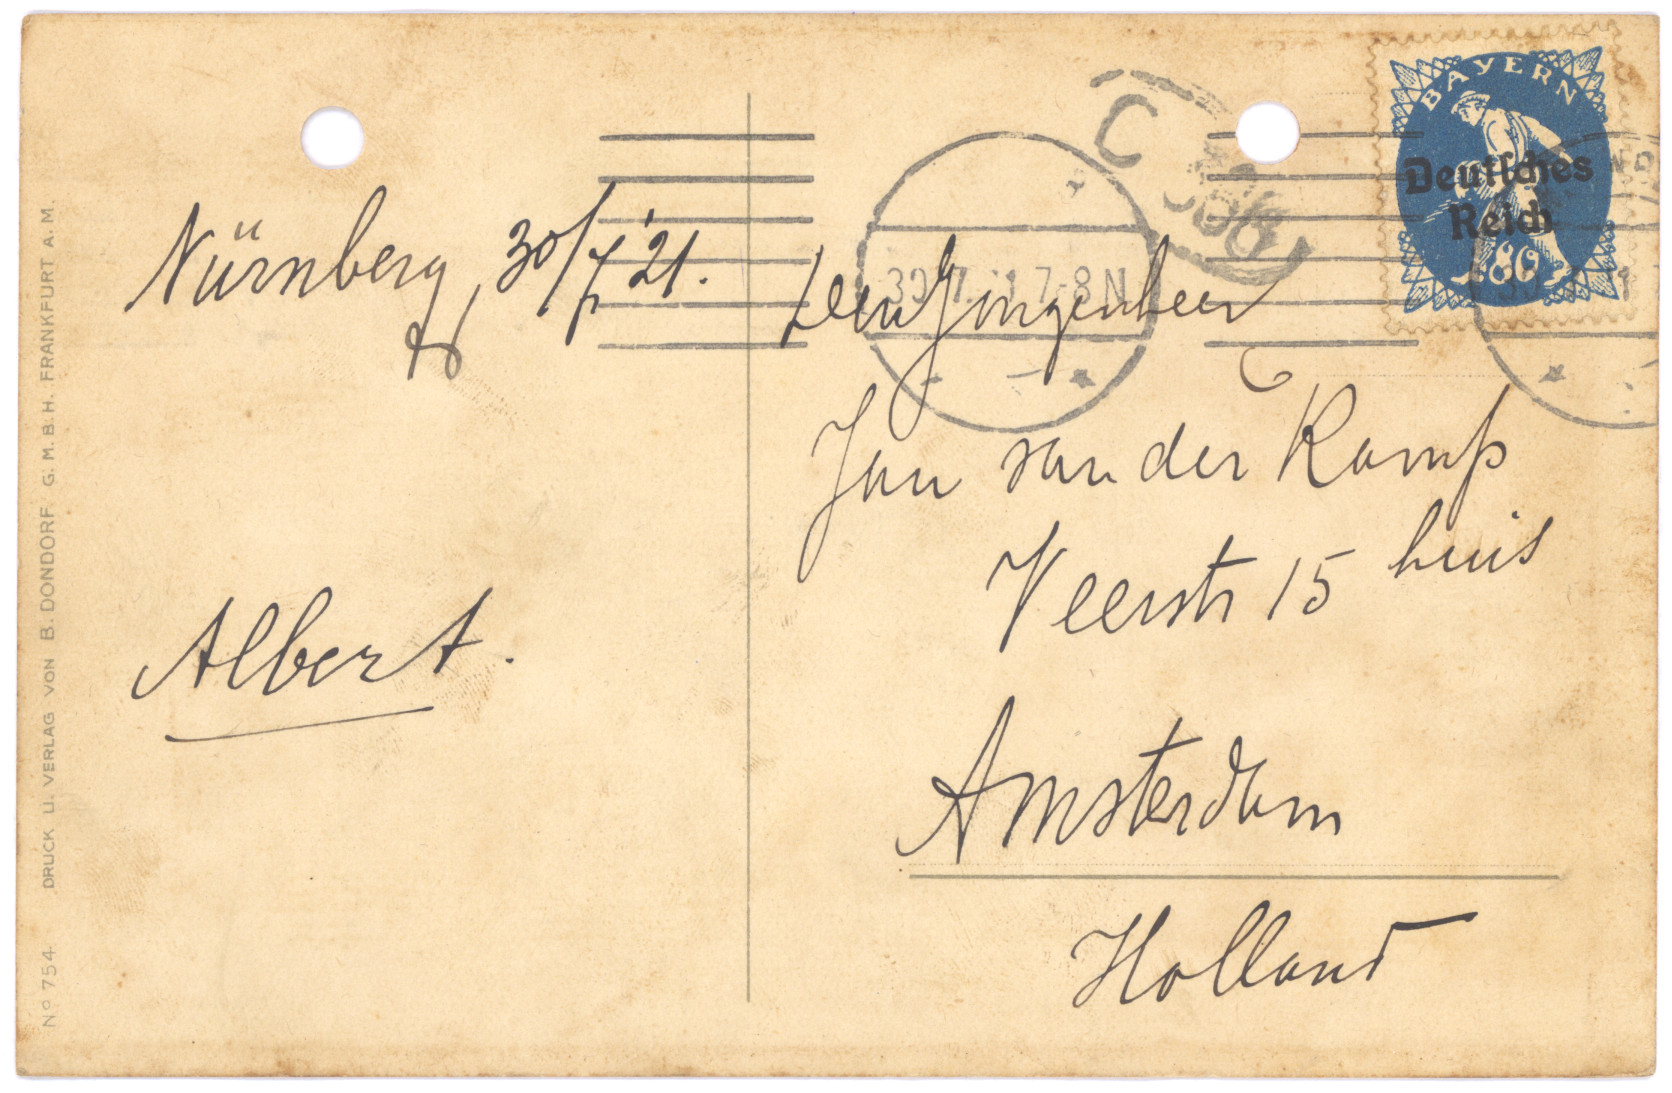 Nürnberg, 30/7 '21.
Albert.
den Jongenheer
Jan van der Kamp
Veerstr 15 huis
Amsterdam
Holland
BAYERN
Deutsches
Reich
80
30.7.21 7-8 N
Nº 754. DRUCK U. VERLAG VON B. DONDORF G. M. B. H. FRANKFURT A. M.